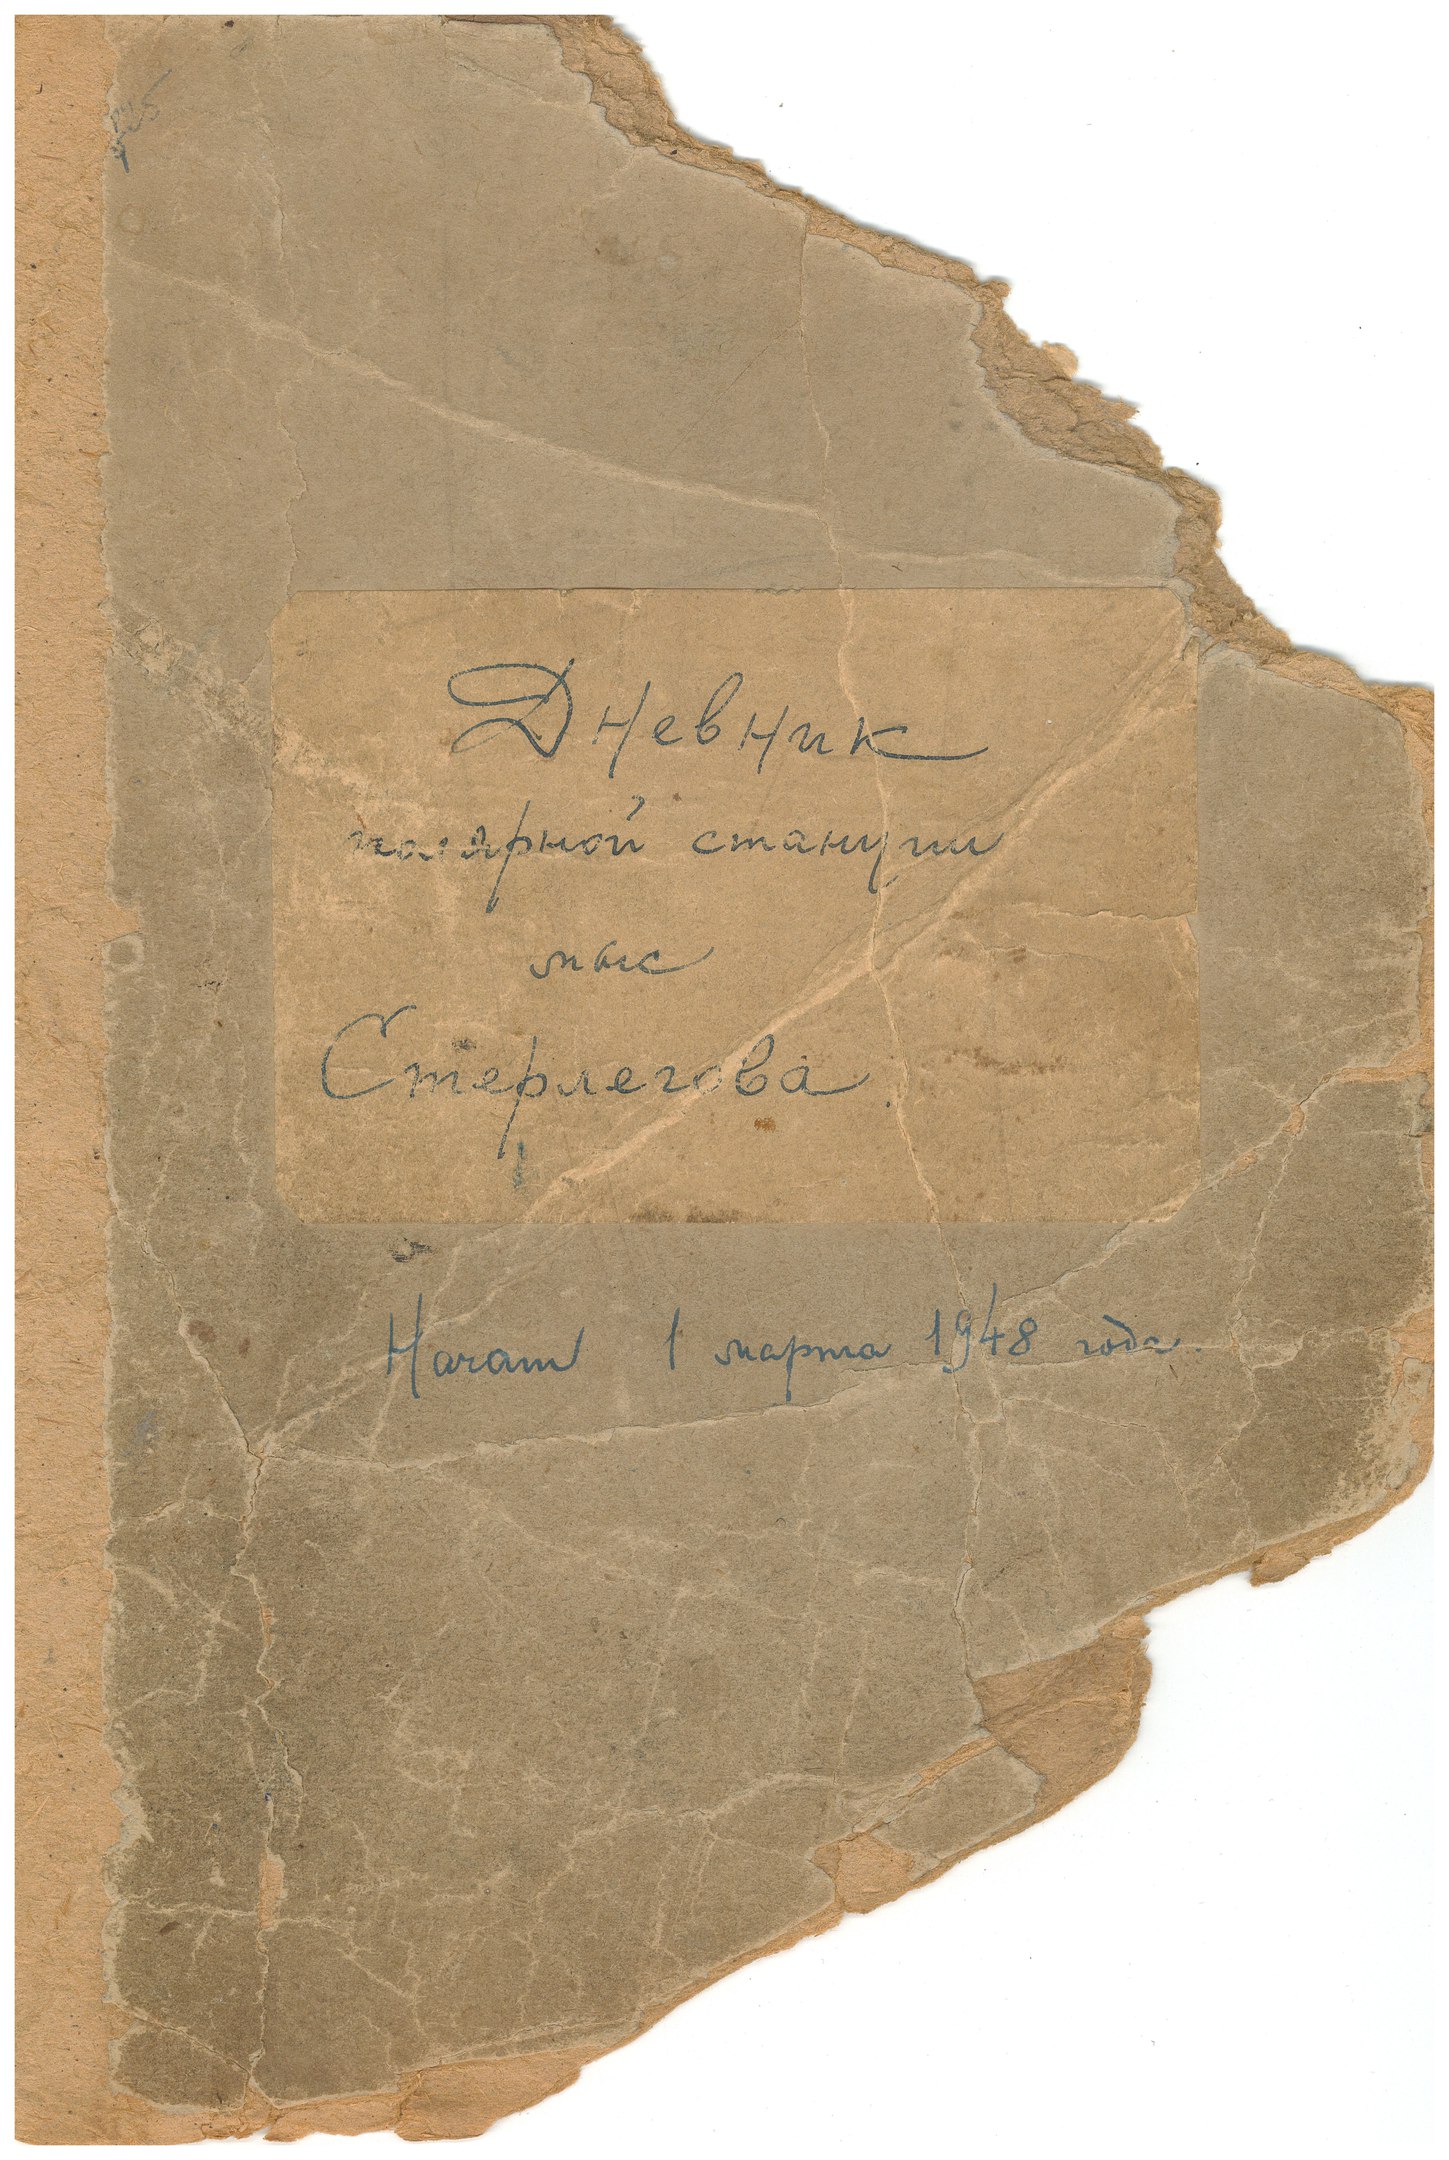 Дневник
полярной станции
мыс
Стерлегова.
Начат 1 марта 1948 года.